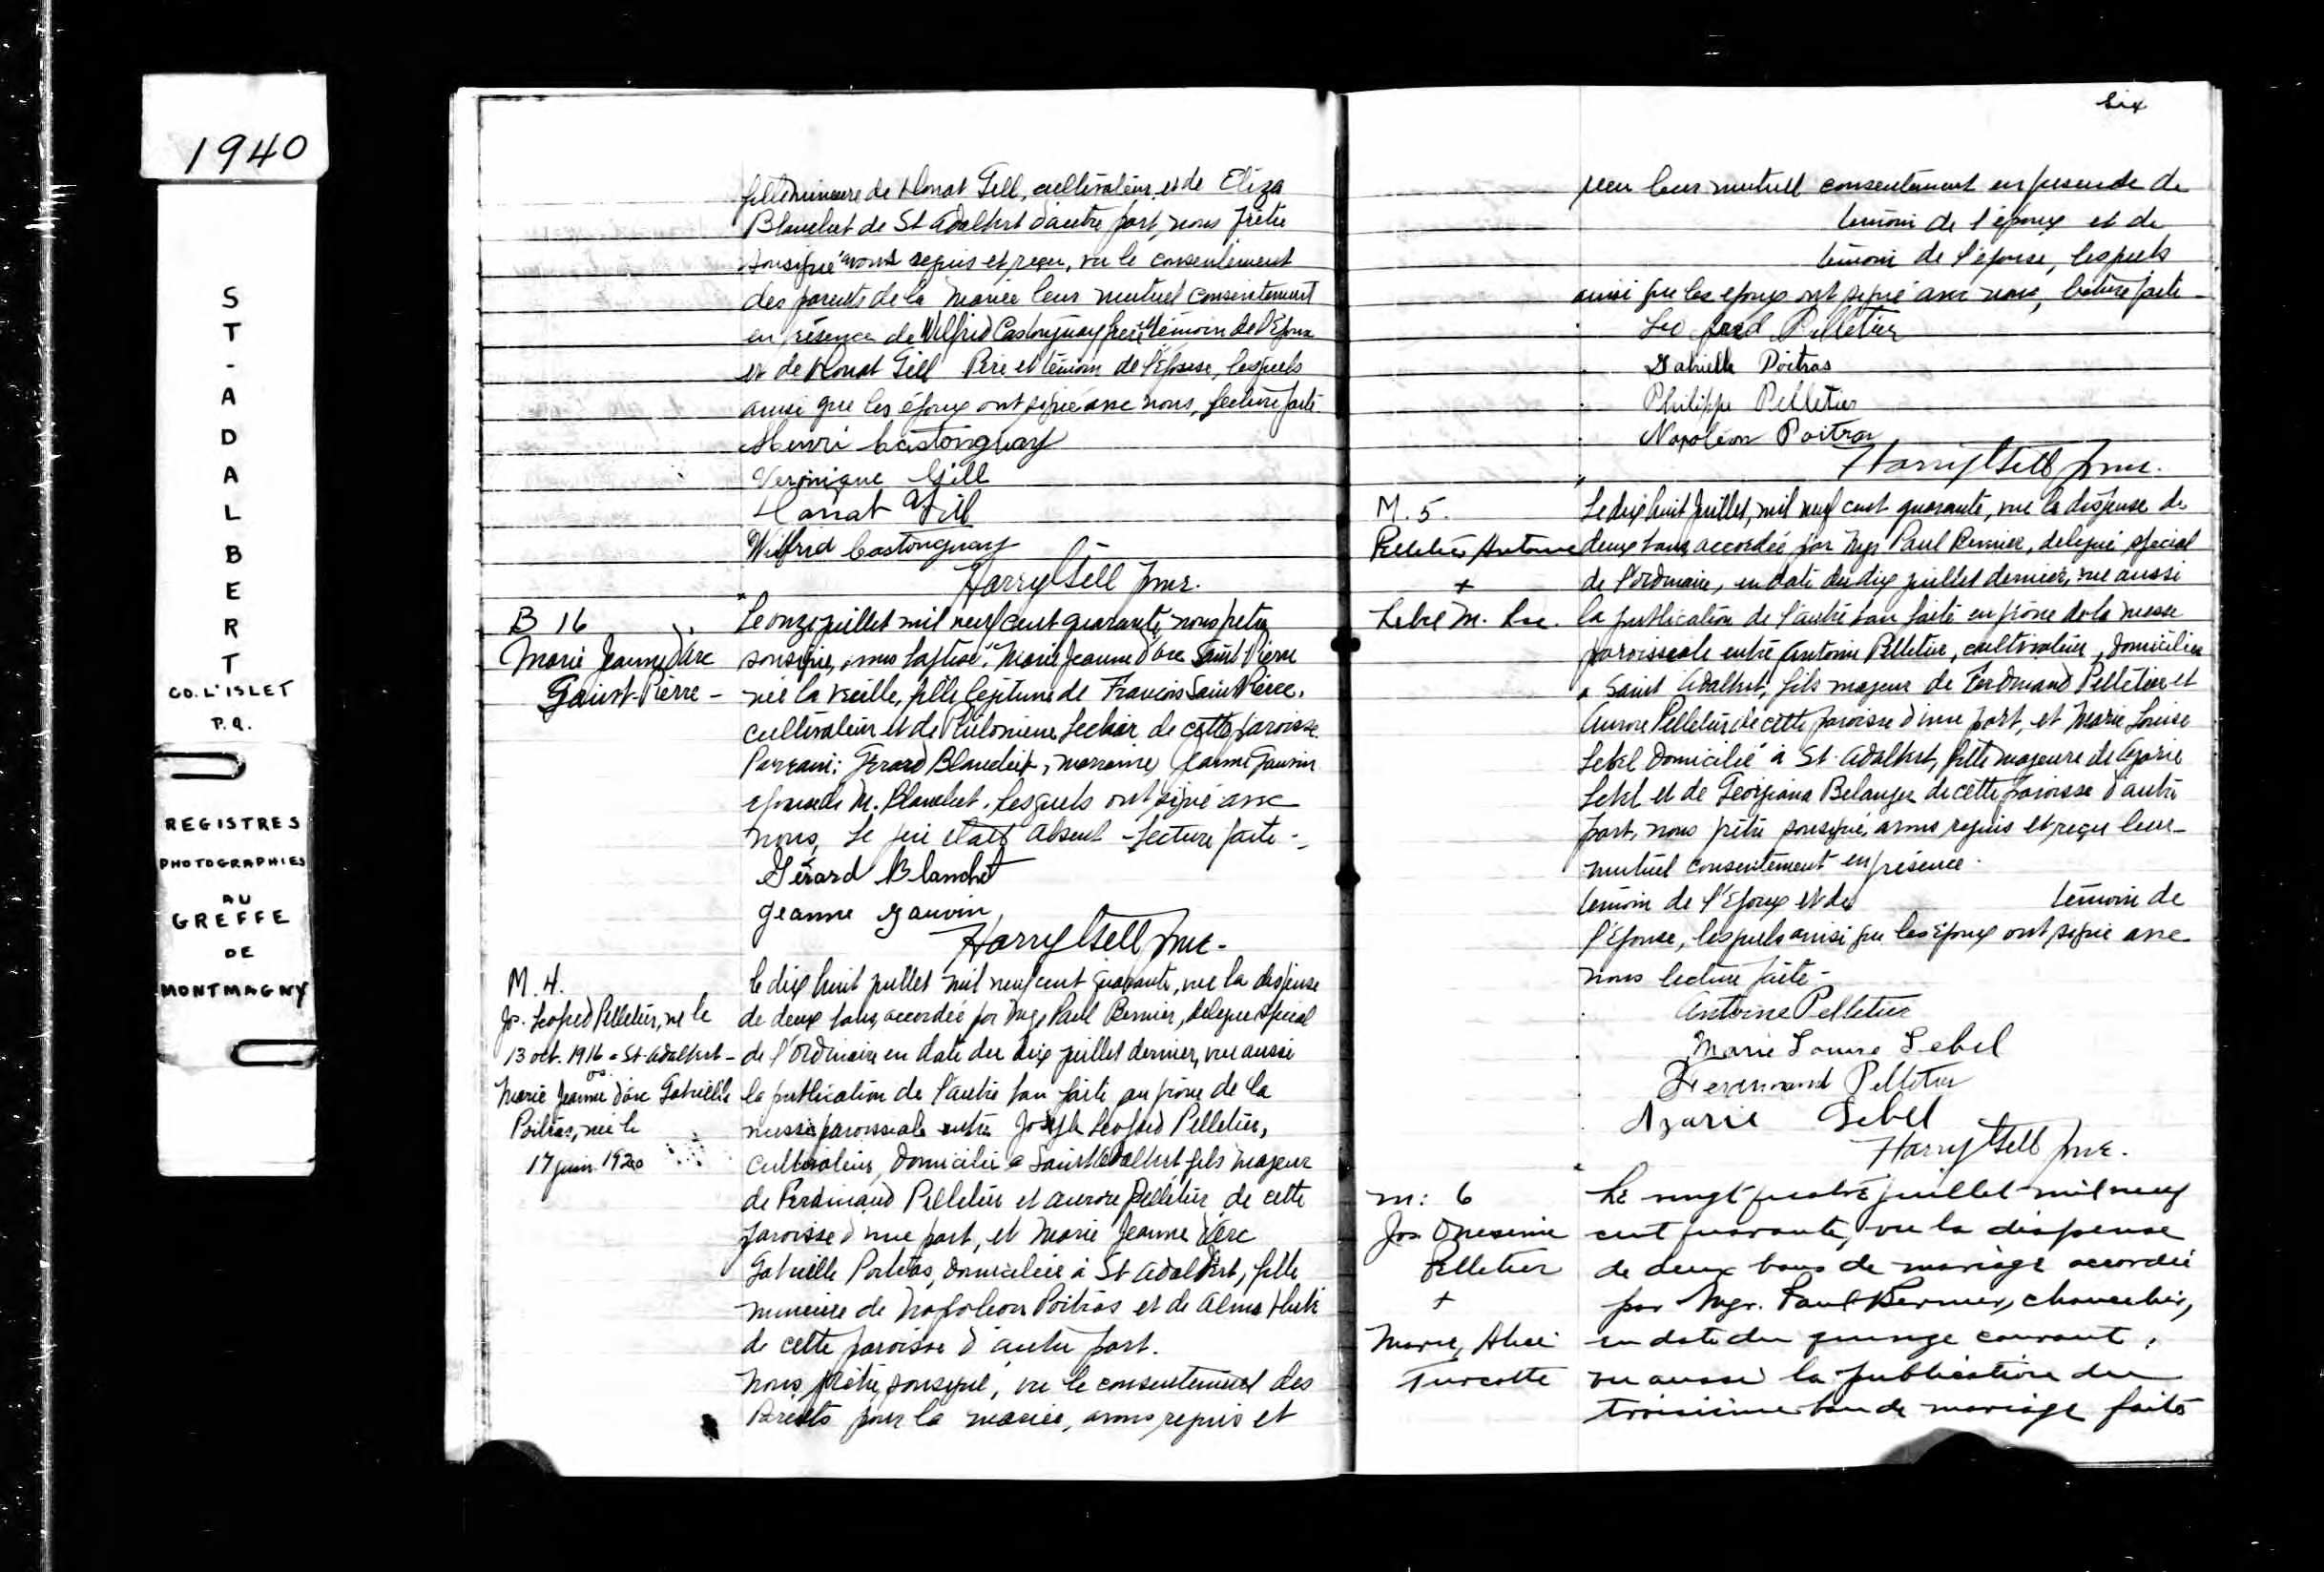 1940
ST-ADALBERT
CO. L'ISLET
P.Q.
REGISTRES
PHOTOGRAPHIES
AU
GREFFE
DE
MONTMAGNY
fille mineure de Honat Gill, cultivateur, et de Eliza
Blanchet de St Adalbert d'autre part, nous prêtre
soussigné avons requis et reçu, vu le consentement
des parents de la mariée leur mutuel consentement
en présence de Wilfrid Castonguay frère témoin de l'Epoux
et de Honat Gill Père et témoin de l'Epouse, lesquels
ainsi que les époux ont signé avec nous, Lecture faite.
Henri Castonguay
Veronique Gill
Honat Gill
Wilfrid Castonguay
Harry Gill Ptre.
B 16
Marie Jeanne d'Arc
Saint-Pierre -
Le onze juillet mil neuf cent quarante, nous prêtre
soussigné, avons baptisé Marie Jeanne d'Arc Saint Pierre
née la veille, fille légitime de François Saint Pierre,
cultivateur et de Philomène de cette paroisse.
Parrain: Gérard Blanchet, marraine Jeanne Gauvin
épouse de M. Blanchet. Lesquels ont signé avec
nous, Le père était absent - Lecture faite -
Gérard Blanchet
Jeanne Gauvin
Harry Gill Ptre -
M. 4.
Jos. Léofred Pelletier, né le
13 oct. 1916 à St-Adalbert -
os.
Marie Jeanne d'Arc Gabrielle
Poitras, née le
17 juin 1920
le dix huit juillet mil neuf cent quarante, vu la dispense
de deux bans, accordée par Mgr Paul Bernier, délégué spécial
de l'Ordinaire en date du dix juillet dernier, vu aussi
la publication de l'autre ban faite au prône de la
messe paroissiale entre Joseph Léofred Pelletier,
cultivateur, domicilié à Saint Adalbert fils majeur
de Ferdinand Pelletier et Aurore Pelletier de cette
paroisse d'une part, et Marie Jeanne d'Arc
Gabrielle Poitras, domiciliée à St Adalbert, fille
mineure de Napoléon Poitras et de Alma
de cette paroisse d'autre part.
Nous, prêtre soussigné, vu le consentement des
Parents pour la mariée, avons requis et
six
reçu leur mutuel consentement en présence de
témoin de l'époux et de
témoin de l'épouse, lesquels
ainsi que les époux ont signé avec nous, lecture faite -
Léo fred Pelletier
Gabrielle Poitras
Philippe Pelletier
Napoléon Poitras
Harry Gill Ptre.
M. 5.
Pelletier Antoine
+
Lebel M. Lse.
Le dix huit Juillet, mil neuf cent quarante, vue la dispense de
deux bans accordée par Mgr Paul Bernier, délégué spécial
de l'ordinaire, en date du dix juillet dernier, vue aussi
la publication de l'autre ban faite en prône de la messe
paroissiale entre Antoine Pelletier, cultivateur, domicilié
à Saint Adalbert, fils majeur de Ferdinand Pelletier et
Aurore Pelletier de cette paroisse d'une part, et Marie Louise
Lebel Domicilié à St. Adalbert, fille majeure de Azarie
Lebel et de Georgiana Belanger de cette paroisse d'autre
part, nous prêtre soussigné, avons requis et reçu leur
mutuel consentement en présence.
témoin de l'Epoux et de témoin de
l'Epouse, lesquels ainsi que les Epoux ont signé avec
nous lecture faite -
Antoine Pelletier
Marie Louise Lebel
Ferdinand Pelletier
Azarie Lebel
Harry Gill Ptre.
m: 6
Jos. Onesime
Pelletier
+
Marie, Alice
Turcotte
Le vingt quatre juillet mil neuf
cent quarante, vu la dispense
de deux bans de mariage accordée
par Mgr. Paul Bernier, chancelier,
en date du quinze courant,
vu aussi la publication du
troisième ban de mariage faite